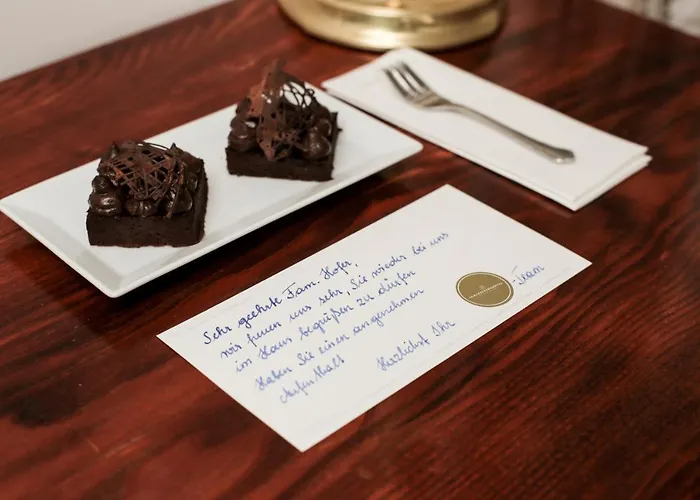 Sehr geehrte Fam. Hofer,
wir freuen uns sehr, Sie wieder bei uns
im Haus begrüßen zu dürfen
Haben Sie einen angenehmen
Aufenthalt
Herzlichst Ihr
-Team